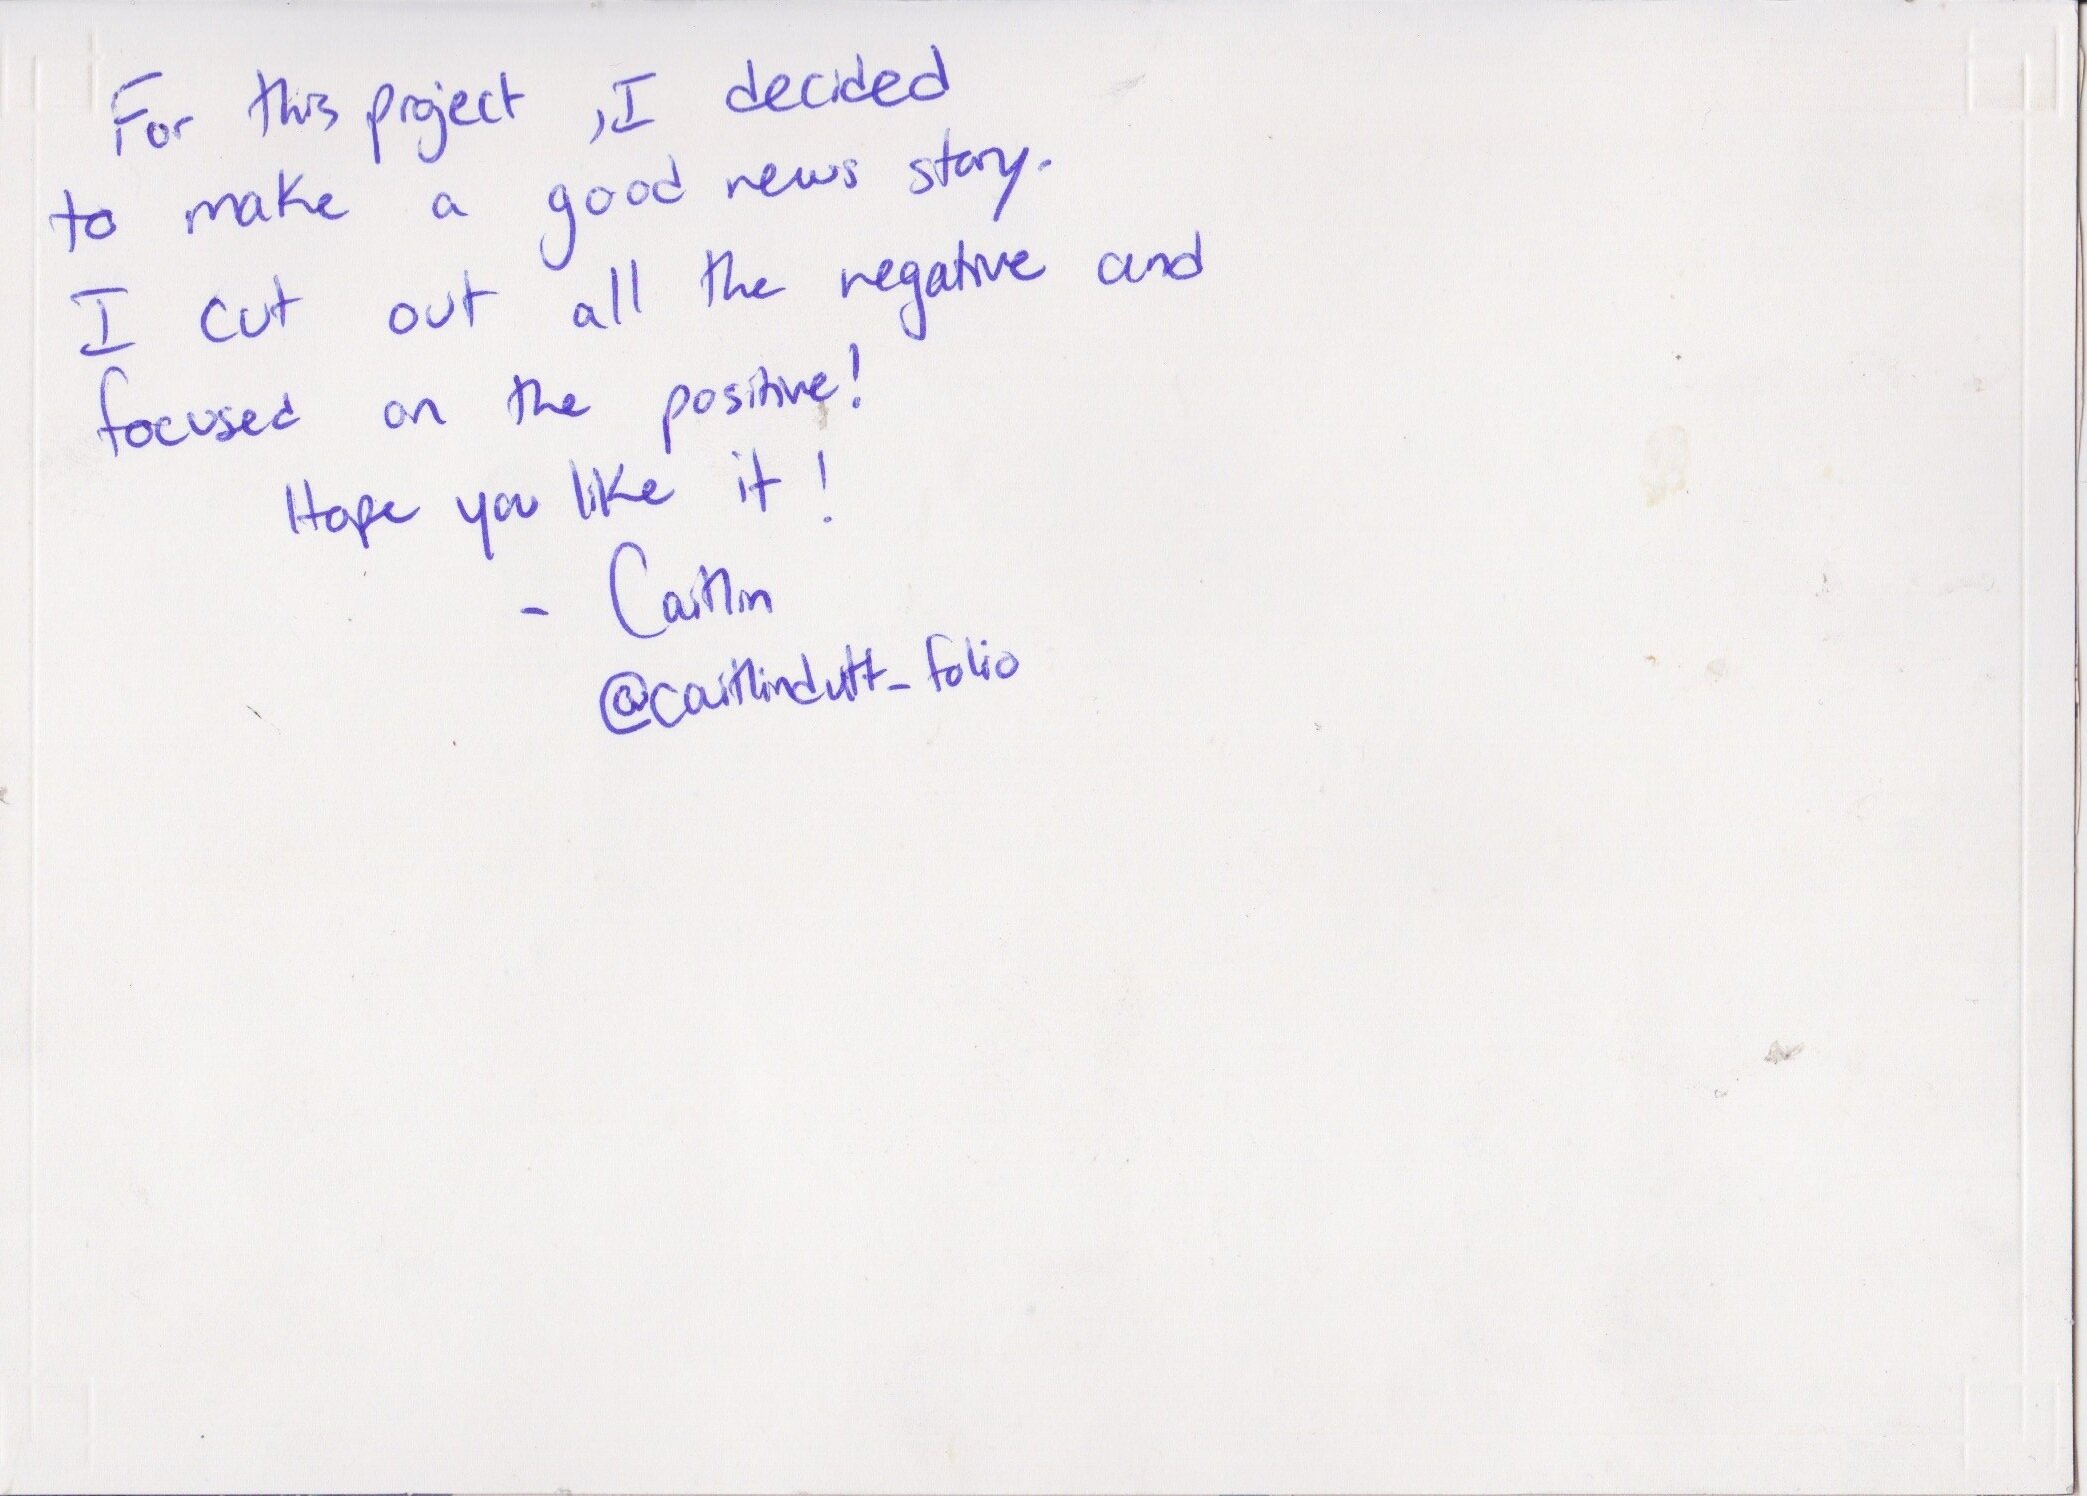 For this project, I decided
to make a good news story.
I cut out all the negative and
focused on the positive!
Hope you like it!
- Caitlin
@caitlindutt_folio